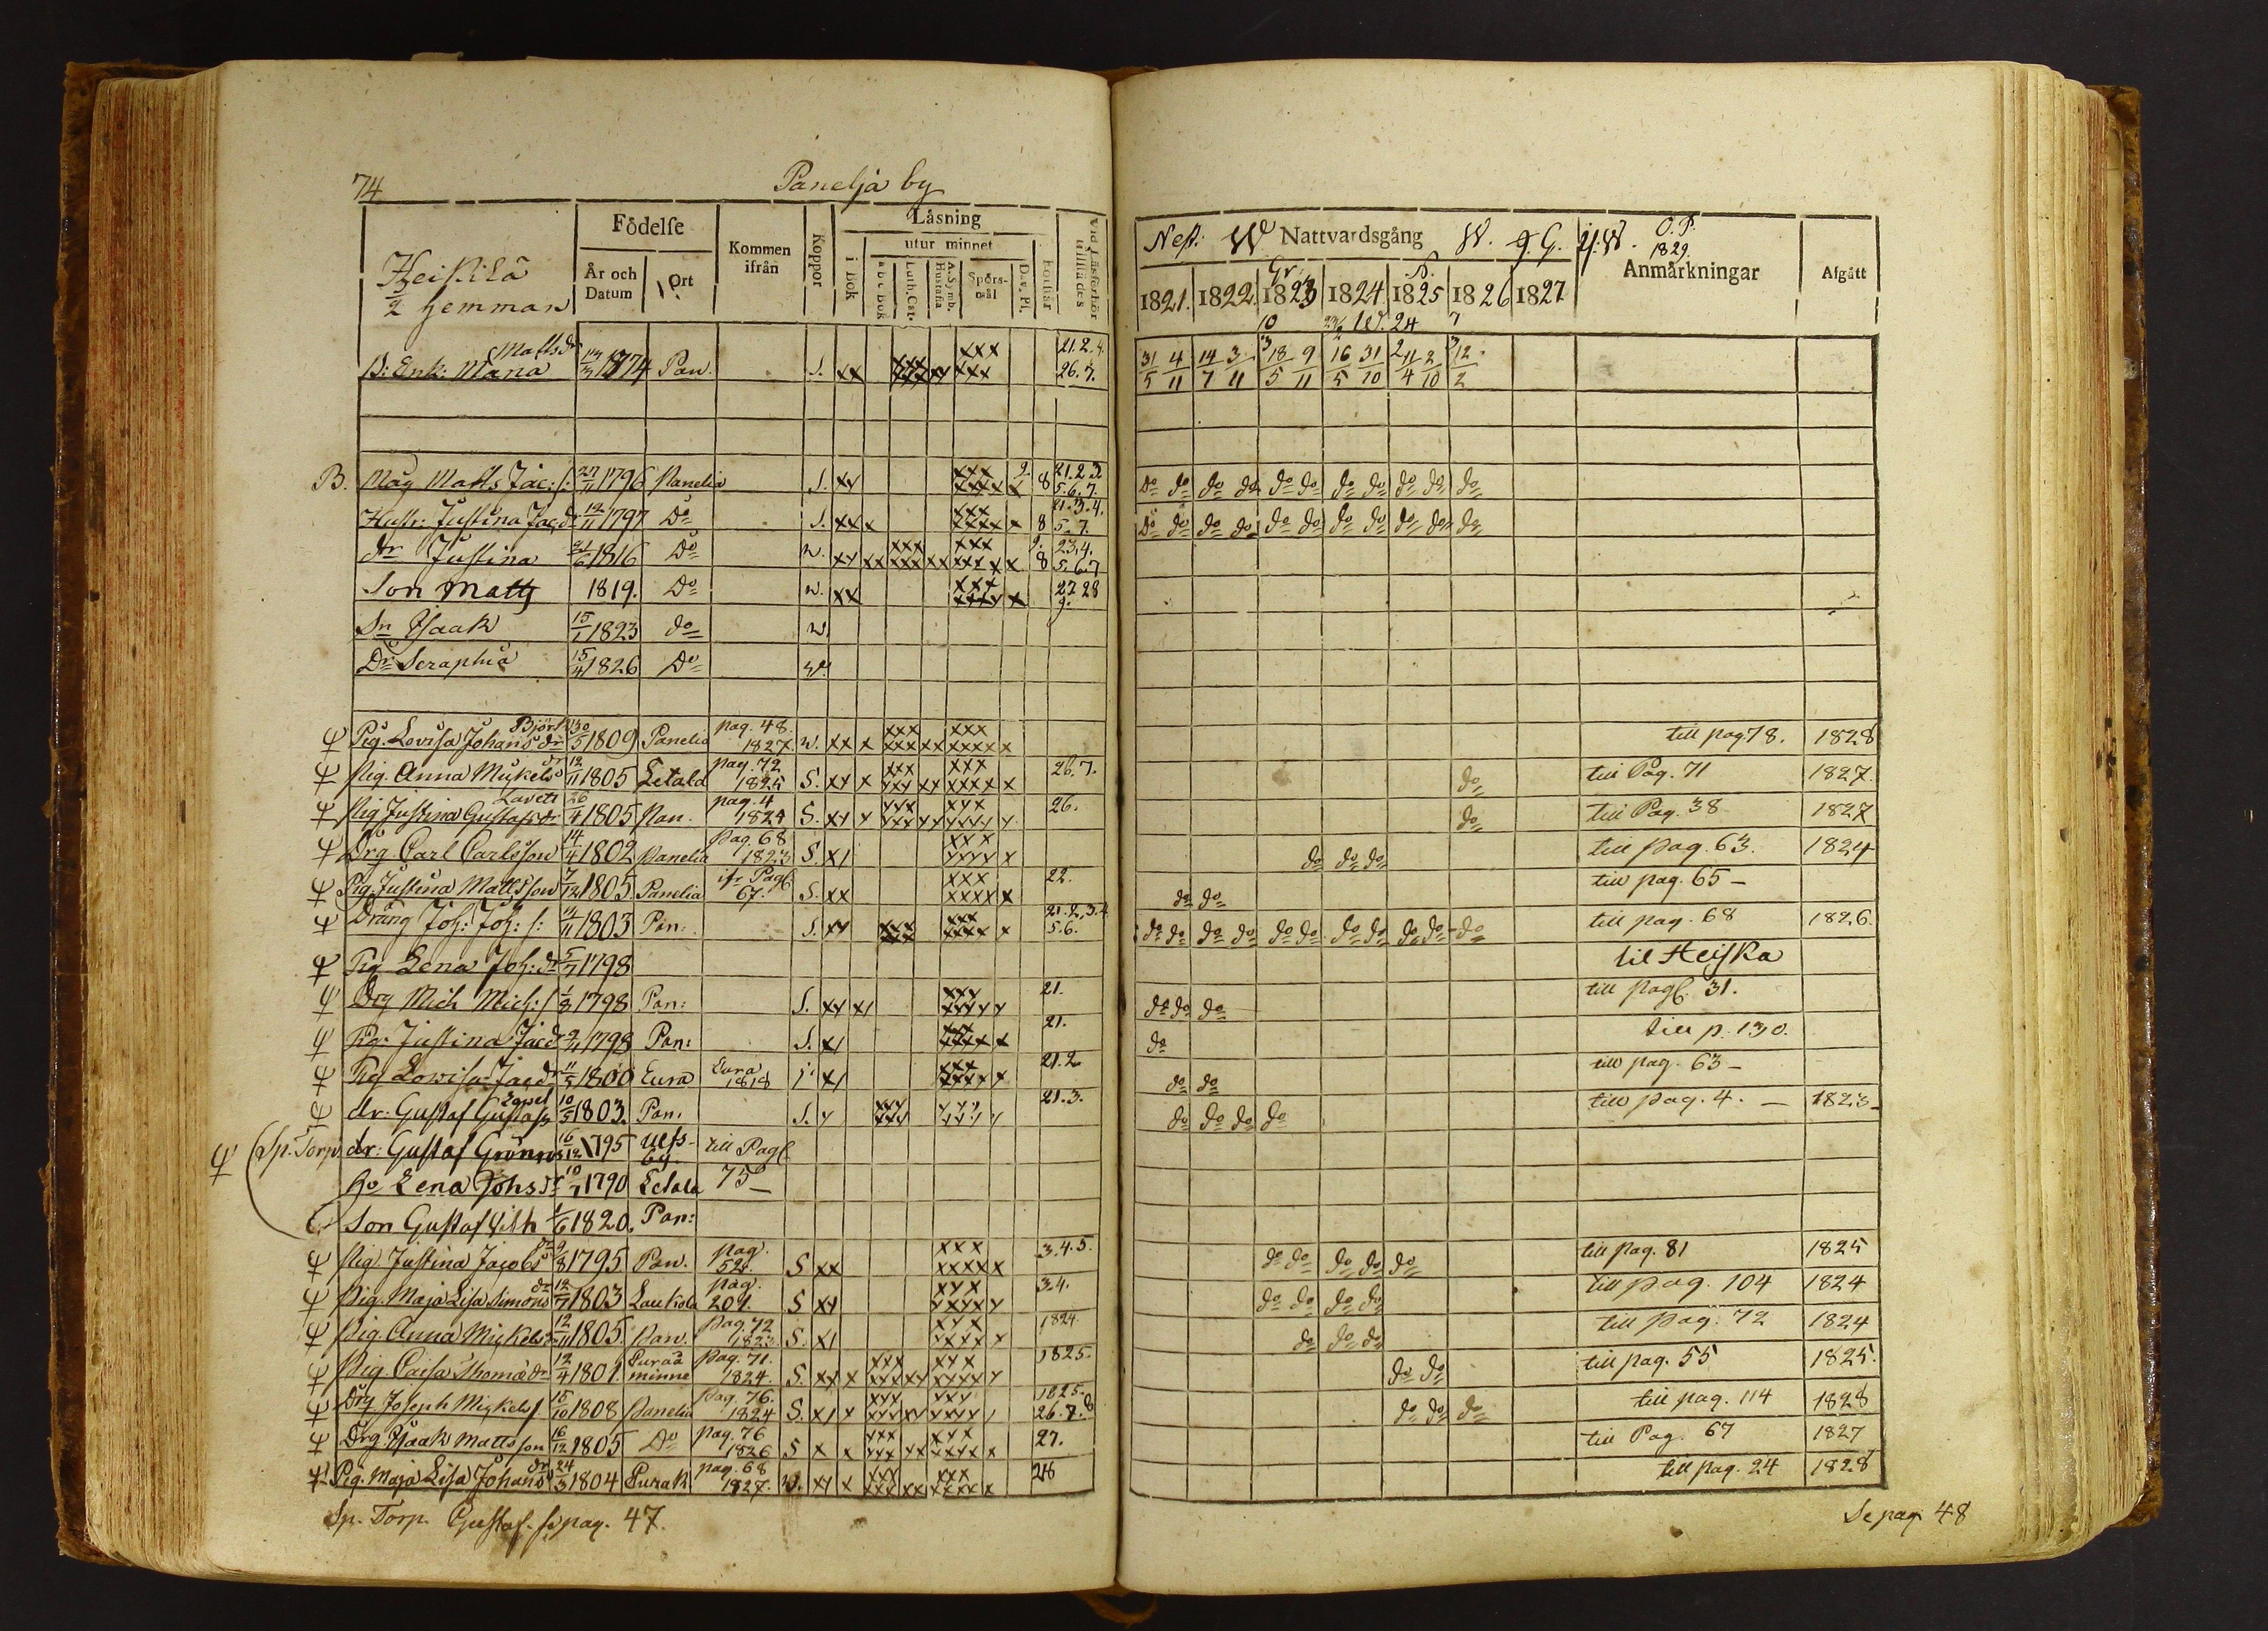 74
Panelja by
Heikkilä
1/2 hemman
Födelse
År och Datum
Ort
Kommen ifrån
Koppor
Läsning
i bok
utur minnet
a b c bok
Luth. Cat.
A. Symb. Hustafla
Spörsmål
Dav. Ps.
Förstår
Vid Läsförhör tillstädes
B: Enk: Maria Mattsdr 13/3 1774 Pan. S. xx xxx xxx xx xxx xxx 21.2.4. 26.7.
B. Måg Matts Jac:s: 27/11 1796 Panelia S. xx xxx xxxx x 9. 8 21.2.3. 5.6.7.
Hustr: Justina Jac.dr 12/11 1797 Do S. xx x xxx xxxx x 8 21.3.4. 5.7.
dr Justina 21/6 1816 Do w. xx xx xxx xxx xx xxx xxx x x 9. 8 23.4. 5.6.7
Son Matts 1819. Do w. xx xxx xxxx x 27 28 9.
Sn Isaak 15/1 1823 do w.
Dr Seraphia 15/4 1826 Do w.
Pig. Lovisa Johans dr Björk 30/5 1809 Panelia pag. 48. 1827. w. xx x xxx xxx xx xxx xxxx x
Pig. Anna Mickels dr 12/11 1805 Letala pag. 72 1825 S. xx x xxx xxx xx xxx xxxx x 26.7.
Pig Justina Gustafs dr Laveti 26/4 1805 Pan. pag. 4 1824 S. xx x xxx xxx xx xxx xxxx x 26.
Drg Carl Carlsson 14/4 1802 Panelia pag. 68 1823 S. x1 xxx xxxx x
Pig. Justina Mattsson 7/12 1805 Panelia ifr. Pag. 67. S. xx xxx xxxx x 22.
Dräng Joh: Joh: s: 1803 Pan: S. xx xxx xxx xxx xxxx x 21.2.3.4 5.6.
Pig Lena Joh: dr 5/7 1798
Drg Mich Mich: s 1/8 1798 Pan: S. xx x1 xxx xxxx x 21.
Pig: Justina Jac dr 2/11 1798 Pan: S. x1 xxx xxxx x 21.
Pig Lowisa Jac dr 11/5 1800 Eura Eura 1818 x1 xxx xxxx x 21.2
dr: Gustaf Gustafss 10/5 1803. Pan. S. x xxx xxx xxx xxxx x 21.3.
Sp. Torp. dr: Gustaf Grönroos 16/12 1795 Ulfsby till Pag.
ho Lena Johs dr 10/7 1790 Letala 75
Son Gustaf Vilh 1/6 1820. Pan:
Pig Justina Jacobs dr 9/8 1795 Pan. pag. 52. S xx xxx xxxx x 3.4.5.
Pig. Maja Lisa Simons dr 12/7 1803 Laukola pag. 201. S xx xxx xxxx x 3.4.
Pig Anna Mickels dr 12/11 1805. Pan. pag 72 1823 S. x1 xxx xxxx x 1824.
Pig Caisa Thomæ dr 12/4 1801. Euraåminne pag. 71. 1824. S. xx x xxx xxx xx xxx xxxx x 1825.
Drg Joseph Mickels s 15/10 1808 Panelia pag. 76. 1824 S. x1 x xxx xxx xx xxx xxxx 1 1825. 26.7.8
Drg Isaak Mattsson 16/12 1805 Do pag. 76 1826 S x x xxx xxx xx xxx xxxx x 27.
Pig. Maja Lisa Johans dr 24/3 1804 Eurak. pag. 68 1827. w. xx x xxx xxx xx xxx xxxx x 28
Sp. Torp. Gustaf. s. pag. 47.
Nest: W Nattvardsgång W. g. G. O. P. 1829.
Anmärkningar
Afgått
1821. 1822. 1823 1824 1825 1826 1827
31/5 4/11 14/7 3/11 18/5 9/11 16/5 31/10 11/4 2/10 12/2
do do do do do do do do do do do
do do do do do do do do do do do
till pag. 78. 1828
do till Pag. 71 1827.
do till Pag. 38 1827
do do do till pag. 63. 1824
do do till pag. 65 –
do do do do do do do do do do do till pag. 68 1826.
til Heiska
do do do till pag. 31.
do till p. 130.
do do till pag. 63 –
do do do do till pag. 4. – 1823
do do do do do till pag. 81 1825
do do do do till pag. 104 1824
do do do till pag. 72 1824
do do till pag. 55 1825.
do do do till pag. 114 1828
till Pag. 67 1827
till pag. 24 1828
Se pag 48